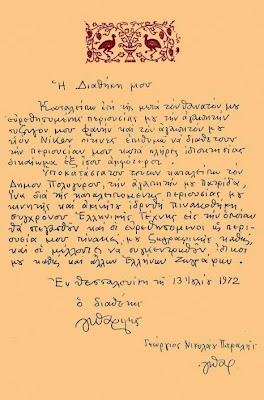 Ἡ Διαθήκη μου
Καταλείπω ἐπί τῆς μετά τόν θάνατόν μου
εὑρεθησομένης περιουσίας μου τήν ἀγαπητήν
σύζυγόν μου Φανήν καί τόν ἀγαπητόν μου
υἱόν Νίκον οἵτινες ἐπιθυμῶ νά διαθέτουν
τήν περιουσίαν μου κατά πλῆρες ἰδιοκτησίας
δικαίωμα ἐξ ἴσου ἀμφότεροι.
Ὑποκατάστατον τούτων καταλείπω τόν
Δῆμον Πολυγύρου, τήν ἀγαπητήν μου Πατρίδα,
ἵνα διά τῆς καταλειπομένης περιουσίας μου
κινητῆς καί ἀκινήτου ἱδρυθῇ πινακοθήκη,
συγχρόνου Ἑλληνικῆς Τέχνης εἰς τήν ὁποίαν
θά στεγασθοῦν καί οἱ εὑρεθησόμενοι εἰς περι-
ουσία μου πίνακες μου ζωγραφικῆς καθώς
καί οἱ μέλλοντες νά συγκεντρωθοῦν ἰδικοί
μου καθώς καί ἄλλων Ἑλλήνων Ζωγράφων.
Ἐν Θεσσαλονίκῃ τῇ 13 Ἰουλίου 1972
ὁ διαθέτης
Γεώργιος Νικολάου Παραλῆς